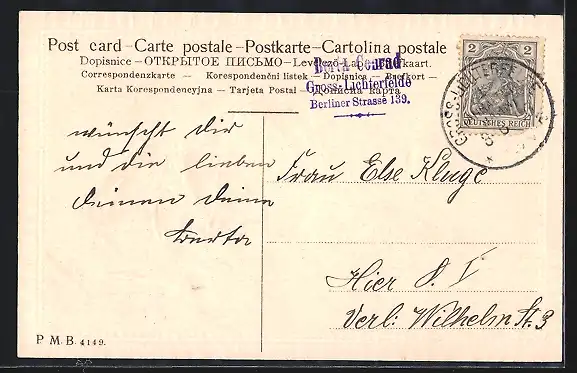 Post card – Carte postale – Postkarte – Cartolina postale
Dopisnice – ОТКРЫТОЕ ПИСЬМО – Levelező-Lap
Correspondenzkarte – Korespondenční listek – Dopisnica – Brefkort –
Karta Korespondencyjna – Tarjeta Postal – карта
Conrad
Gross-Lichterfelde
Berliner Strasse 139.
2 2
DEUTSCHES REICH
wünscht Dir
und die lieben
Deinen Deine
Berta
Frau Else Kluge
Hier
Verl: Wilhelm St. 3
P M B 4149.